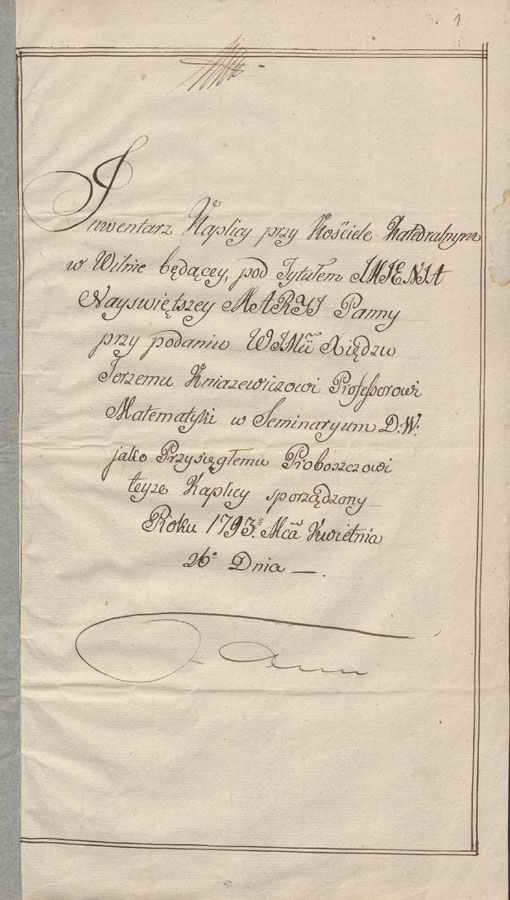 1
Inwentarz Kaplicy przy Kościele Katedralnym
w Wilnie będącey, pod Tytułem IMIENIA
Nayswiętszey MARYI Panny
przy podaniu Xiędzu
Jerzemu Kniazewiczowi Professorowi
Matematyki w Seminaryum D.W.
jako Przysięgłemu Proboszczowi
teyze Kaplicy sporządzony
Roku 1793. Mca Kwietnia
26° Dnia —.